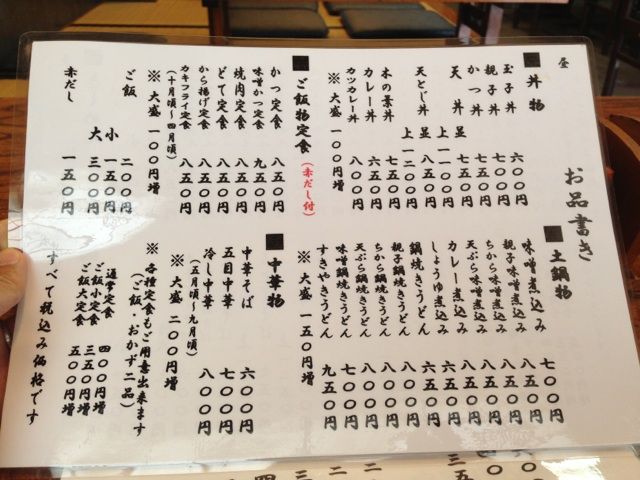 お品書き
昼
■丼物
玉子丼 六〇〇円
親子丼
かつ丼 七五〇円
天丼 並 七五〇円
上 一一〇〇円
天とじ丼 並 八五〇円
上 一二〇〇円
木の葉丼 七五〇円
カレー丼 六五〇円
カツカレー丼 八〇〇円
※大盛 一〇〇円増
■ご飯物定食(赤だし付)
かつ定食 八五〇円
味噌かつ定食 九五〇円
焼肉定食 八五〇円
どて定食 八五〇円
から揚げ定食 八五〇円
カキフライ定食 八五〇円
(十月頃〜四月頃)
※大盛 一〇〇円増
ご飯 二〇〇円
小 一五〇円
大 三〇〇円
赤だし 一五〇円
■土鍋物
味噌煮込み 七〇〇円
親子味噌煮込み 八五〇円
ちから味噌煮込み 八五〇円
天ぷら味噌煮込み 八五〇円
カレー煮込み 八五〇円
しょうゆ煮込み 六五〇円
鍋焼きうどん 六五〇円
親子鍋焼きうどん 八〇〇円
ちから鍋焼きうどん 八〇〇円
天ぷら鍋焼きうどん 八〇〇円
味噌鍋焼きうどん 七〇〇円
すきやきうどん 九五〇円
※大盛 一五〇円増
■中華物
中華そば 六〇〇円
五目中華 七〇〇円
冷し中華 八〇〇円
(五月頃〜九月頃)
※大盛 二〇〇円増
※各種定食もご用意出来ます
(ご飯・おかず二品)
通常定食 四〇〇円増
ご飯小定食 三五〇円増
ご飯大定食 五〇〇円増
すべて税込み価格です